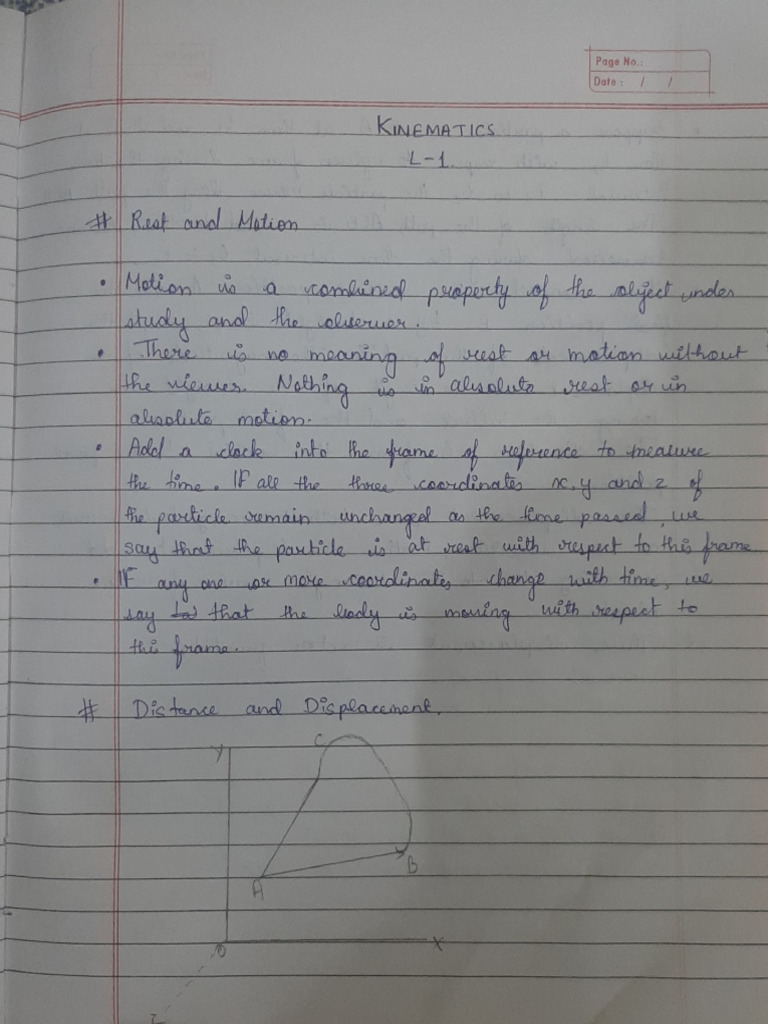 Page No.:
Date : / /
KINEMATICS
L-1.
# Rest and Motion
• Motion is a combined property of the object under
study and the observer.
• There is no meaning of rest or motion without
the viewer. Nothing is in absolute rest or in
absolute motion.
• Add a clock into the frame of reference to measure
the time. IF all the three coordinates x, y and z of
the particle remain unchanged as the time passed, we
say that the particle is at rest with respect to this frame
• IF any one or more coordinates change with time, we
say that the body is moving with respect to
this frame.
# Distance and Displacement.
Y C
B
A
O X
Z